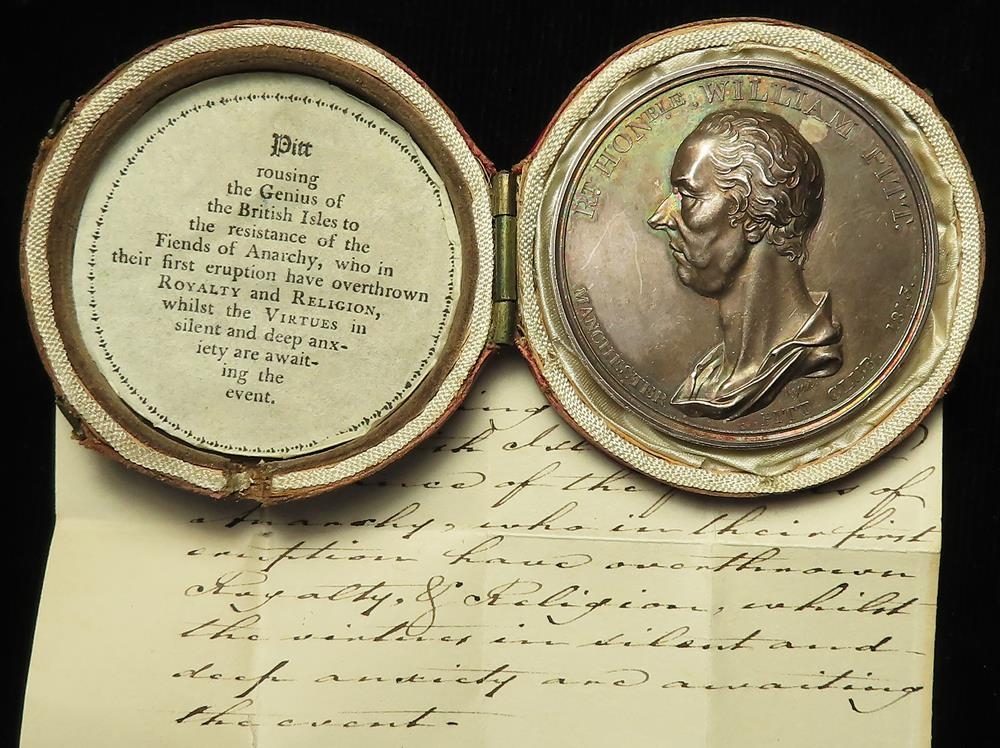 Pitt
rousing
the Genius of
the British Isles to
the resistance of the
Fiends of Anarchy, who in
their first eruption have overthrown
ROYALTY and RELIGION,
whilst the VIRTUES in
silent and deep anx-
iety are await-
ing the
event.
RT HONBLE. WILLIAM PITT.
MANCHESTER PITT CLUB. 1813.
of the
of
Anarchy, who in their first
eruption have overthrown
Royalty, & Religion, whilst
the virtues in silent and
deep anxiety are awaiting
the event.